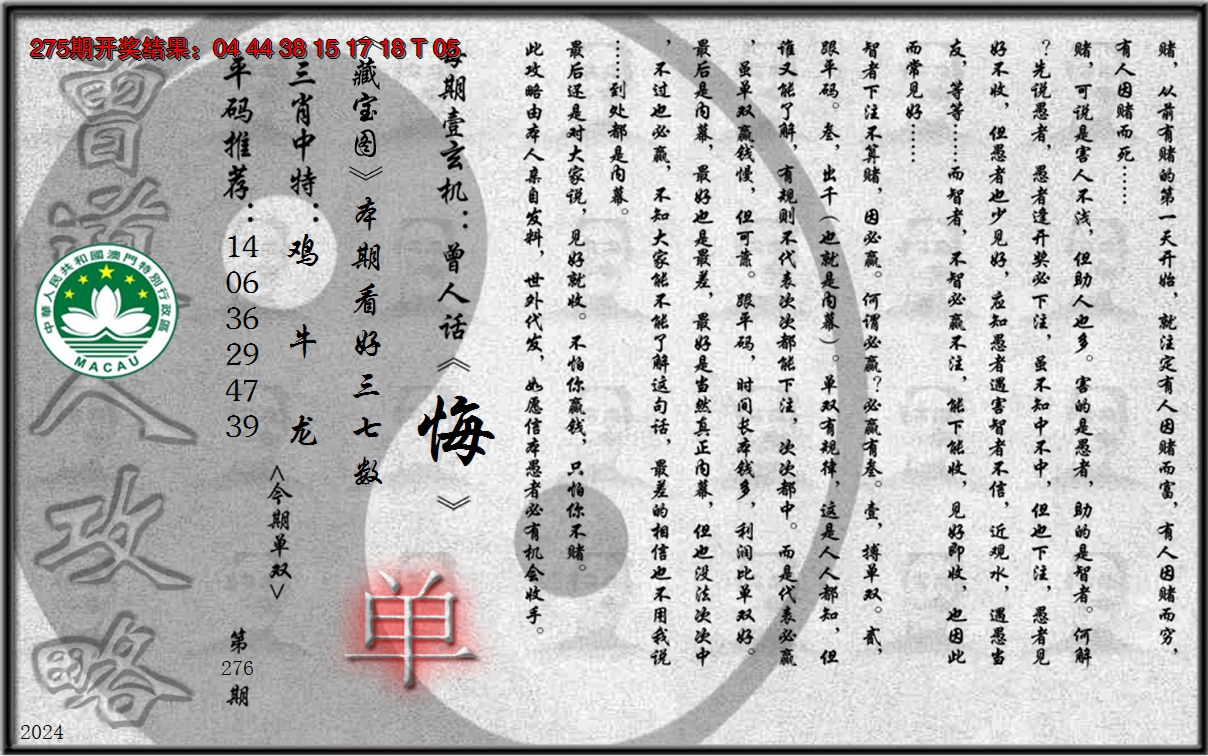 275期开奖结果：04 44 38 15 17 18 T 05
赌，从前有赌的第一天开始，就注定有人因赌而富，有人因赌而穷，
有人因赌而死……
赌，可说是害人不浅，但助人也多。害的是愚者，助的是智者。何解
？先说愚者，愚者逢开奖必下注，虽不知中不中，但也下注，愚者见
好不收，但愚者也少见好，应知愚者遇害智者不信，近观水，遇愚当
友，等等……而智者，不智必赢不注，能下能收，见好即收，也因此
而常见好……
智者下注不算赌，因必赢。何谓必赢？必赢有叁。壹，搏单双。贰，
跟平码。叁，出千（也就是内幕）。单双有规律，这是人人都知，但
谁又能了解，有规则不代表次次都能下注，次次都中。而是代表必赢
，虽单双赢钱慢，但可靠。跟平码，时间长本钱多，利润比单双好。
最后是内幕，最好也是最差，最好是当然真正内幕，但也没法次次中
，不过也必赢，不知大家能不能了解这句话，最差的相信也不用我说
……到处都是内幕。
最后还是对大家说，见好就收。不怕你赢钱，只怕你不赌。
此攻略由本人亲自发料，世外代发，如愿信本愚者必有机会收手。
每期壹玄机：曾人话《悔》
《藏宝图》本期看好三七数
三肖中特：鸡 牛 龙
<今期单双>
单
平码推荐：14 06 36 29 47 39
第276期
曾道人攻略
中華人民共和國澳門特別行政區
MACAU
2024